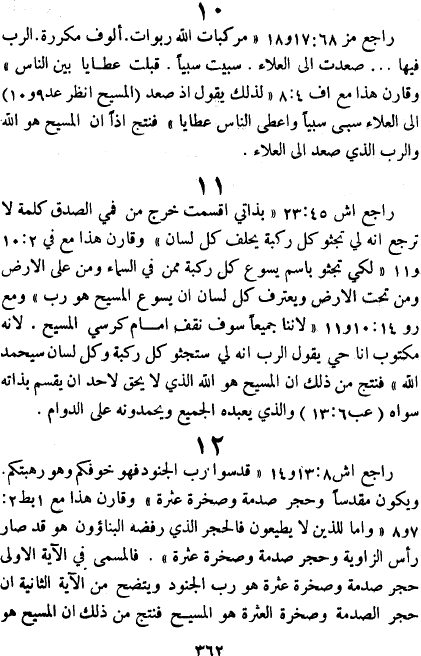 ١٠
راجع مز ٦٨:١٧و١٨ « مركبات الله ربوات. ألوف مكررة. الرب
فيها ... صعدت الى العلاء . سبيت سبياً . قبلت عطايا بين الناس »
وقارن هذا مع اف ٤:٨ « لذلك يقول اذ صعد (المسيح انظر عد٩و١٠)
الى العلاء سبى سبياً واعطى الناس عطايا » فنتج اذاً ان المسيح هو الله
والرب الذي صعد الى العلاء .
١١
راجع اش ٤٥:٢٣ « بذاتي اقسمت خرج من فمي الصدق كلمة لا
ترجع انه لي تجثو كل ركبة يحلف كل لسان » وقارن هذا مع في ٢:١٠
و١١ « لكي تجثو باسم يسوع كل ركبة ممن في السماء ومن على الارض
ومن تحت الارض ويعترف كل لسان ان يسوع المسيح هو رب » ومع
رو ١٤:١٠و١١ « لاننا جميعاً سوف نقف امام كرسي المسيح . لانه
مكتوب انا حي يقول الرب انه لي ستجثو كل ركبة وكل لسان سيحمد
الله » فنتج من ذلك ان المسيح هو الله الذي لا يحق لاحد ان يقسم بذاته
سواه (عب٦:١٣) والذي يعبده الجميع ويحمدونه على الدوام .
١٢
راجع اش٨:١٣و١٤ « قدسوا رب الجنود فهو خوفكم وهو رهبتكم.
ويكون مقدساً وحجر صدمة وصخرة عثرة » وقارن هذا مع ١بط٢:
٧و٨ « واما للذين لا يطيعون فالحجر الذي رفضه البناؤون هو قد صار
رأس الزاوية وحجر صدمة وصخرة عثرة » . فالمسمى في الآية الاولى
حجر صدمة وصخرة عثرة هو رب الجنود ويتضح من الآية الثانية ان
حجر الصدمة وصخرة العثرة هو المسيح فنتج من ذلك ان المسيح هو
٣٦٢